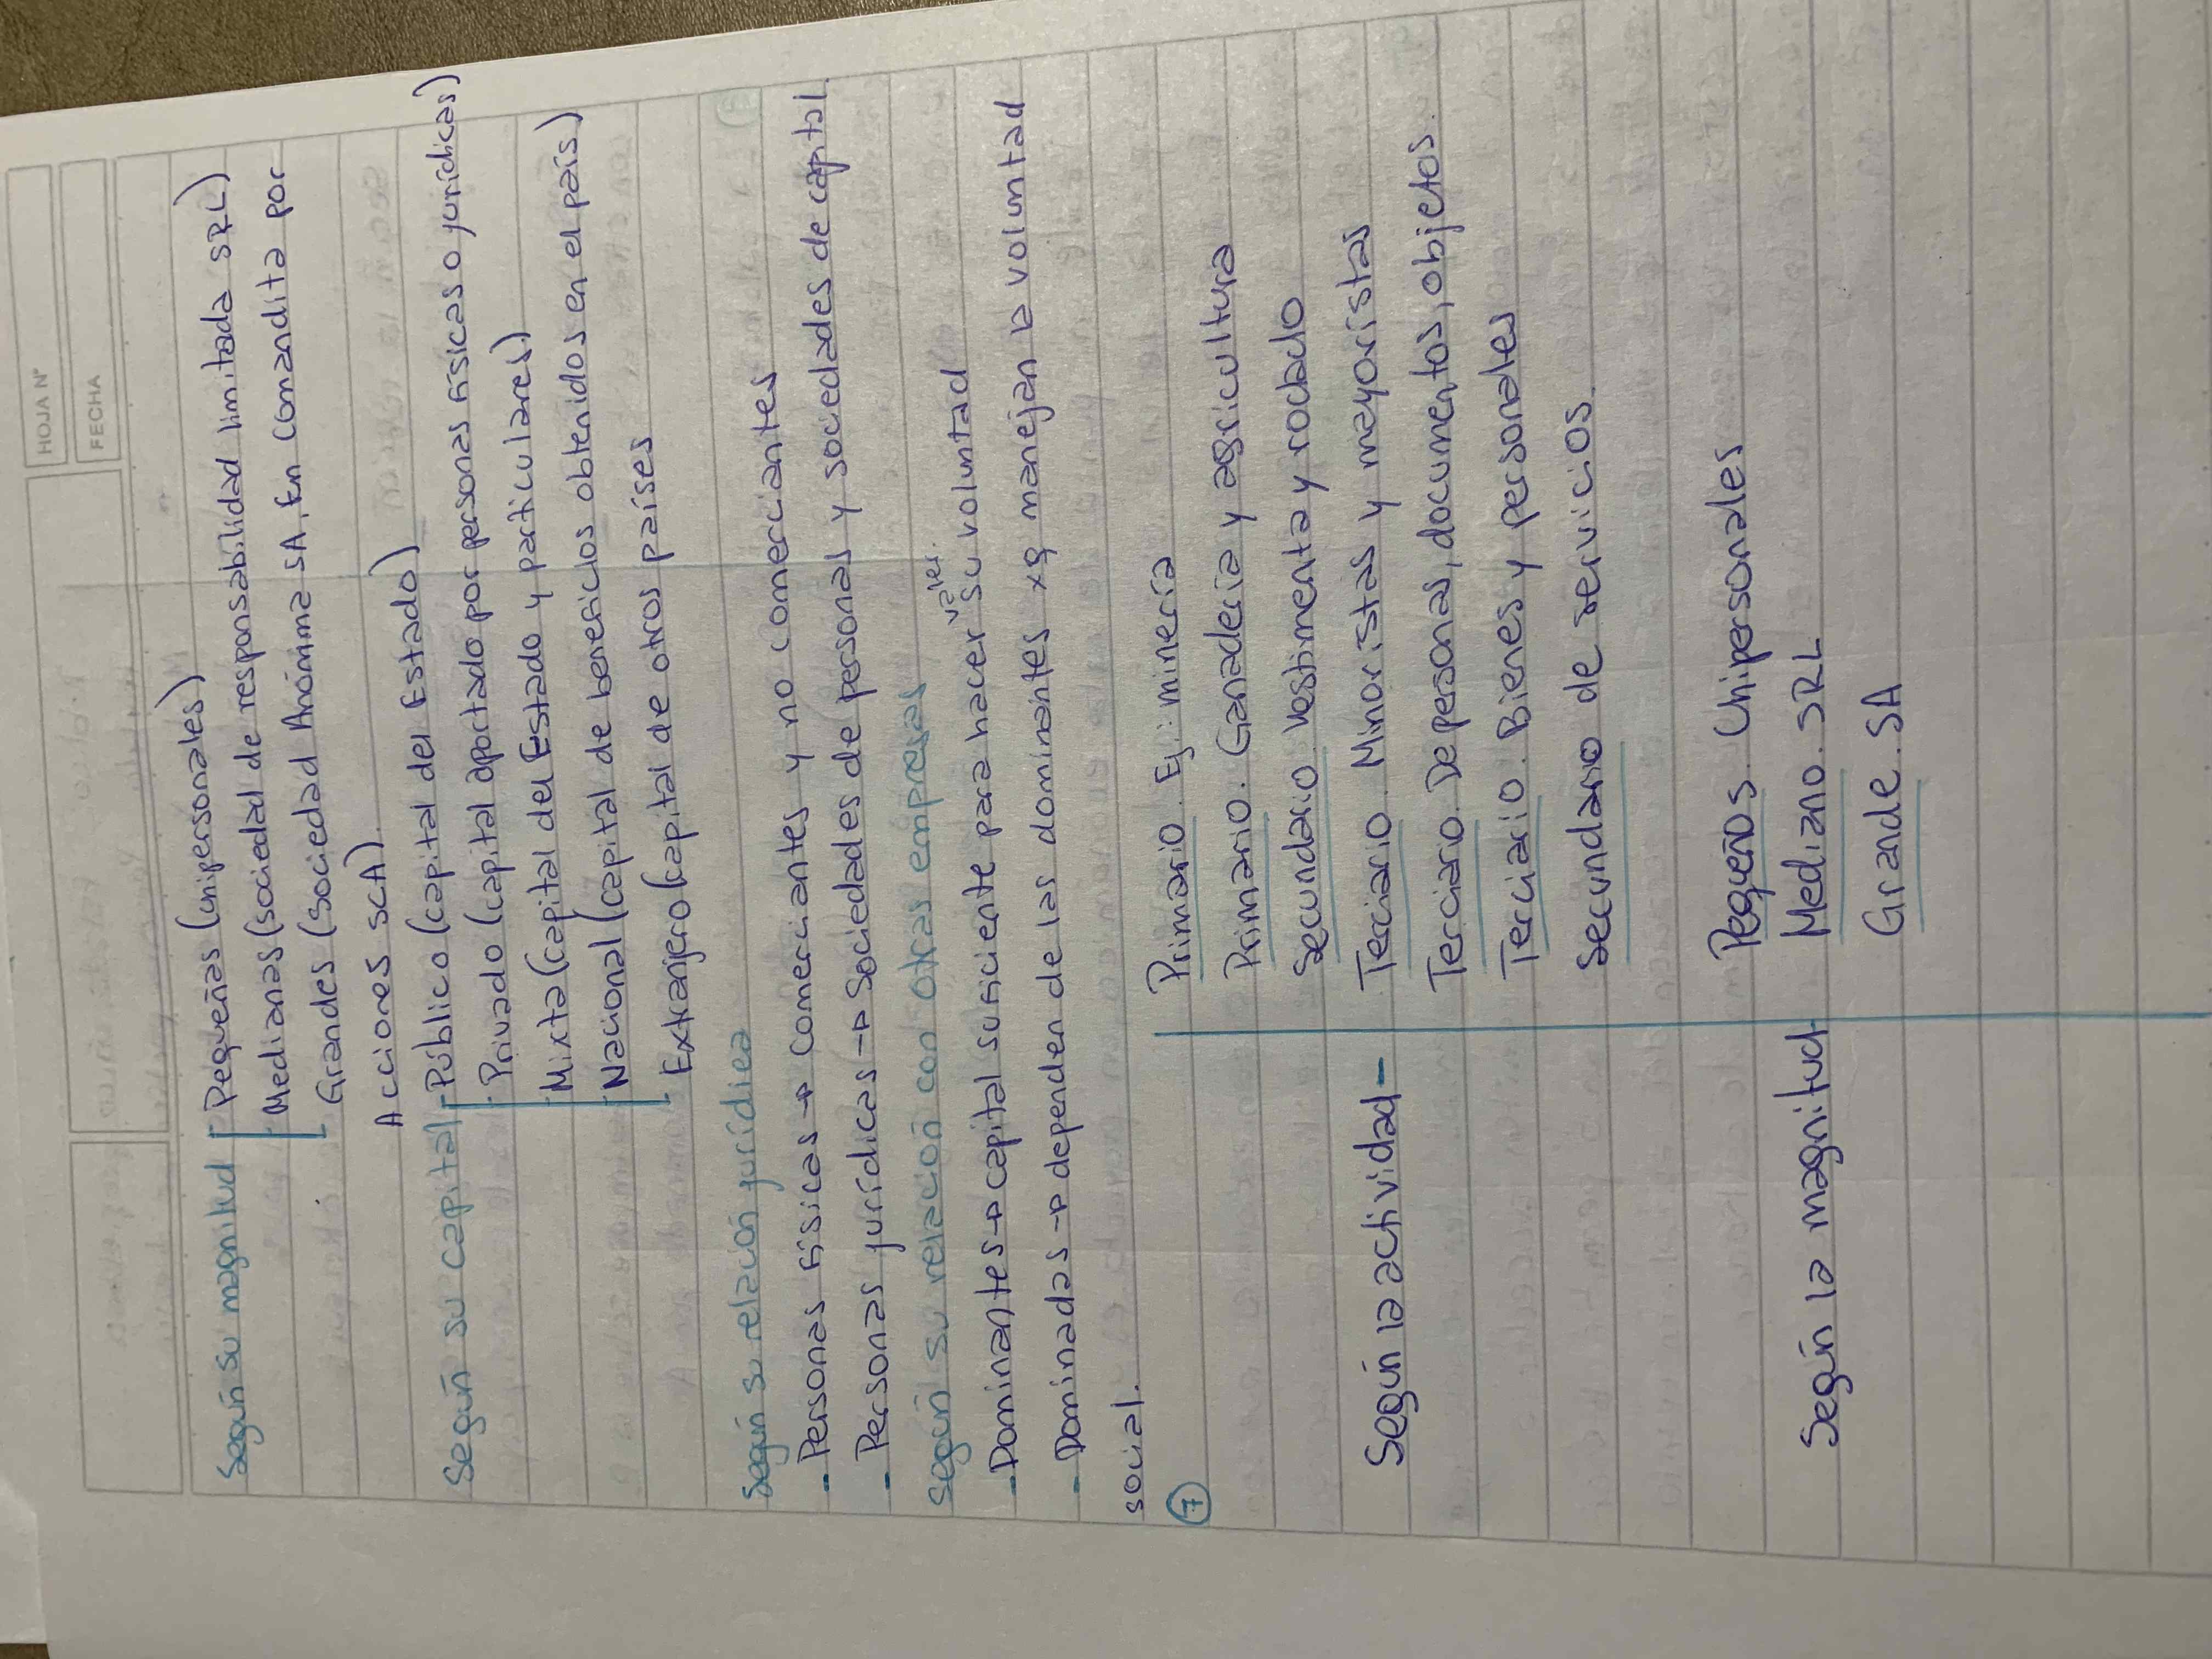 HOJA Nº
FECHA
Según su magnitud Pequeñas (Unipersonales)
Medianas (sociedad de responsabilidad limitada SRL)
Grandes (sociedad Anónima SA, En Comandita por
Acciones SCA)
Según su capital Público (capital del Estado)
Privado (capital aportado por personas físicas o jurídicas)
Mixta (capital del Estado y particulares)
Nacional (capital de beneficios obtenidos en el país)
Extranjero (capital de otros países
Según su relación jurídica
- Personas físicas → comerciantes y no comerciantes
- Personas jurídicas → Sociedades de personas y sociedades de capital
Según su relación con otras empresas
- Dominantes → capital suficiente para hacer valer su voluntad
- Dominadas → dependen de las dominantes xq manejan la voluntad
social.
7
Primario. Ej: minería
Primario. Ganadería y agricultura
Secundario. Vestimenta y rodado
Según la actividad - Terciario. Minoristas y mayoristas
Terciario. De personas, documentos, objetos.
Terciario. Bienes y personales
Secundario de servicios.
Pequeños. Unipersonales
Según la magnitud Mediano. SRL
Grande. SA